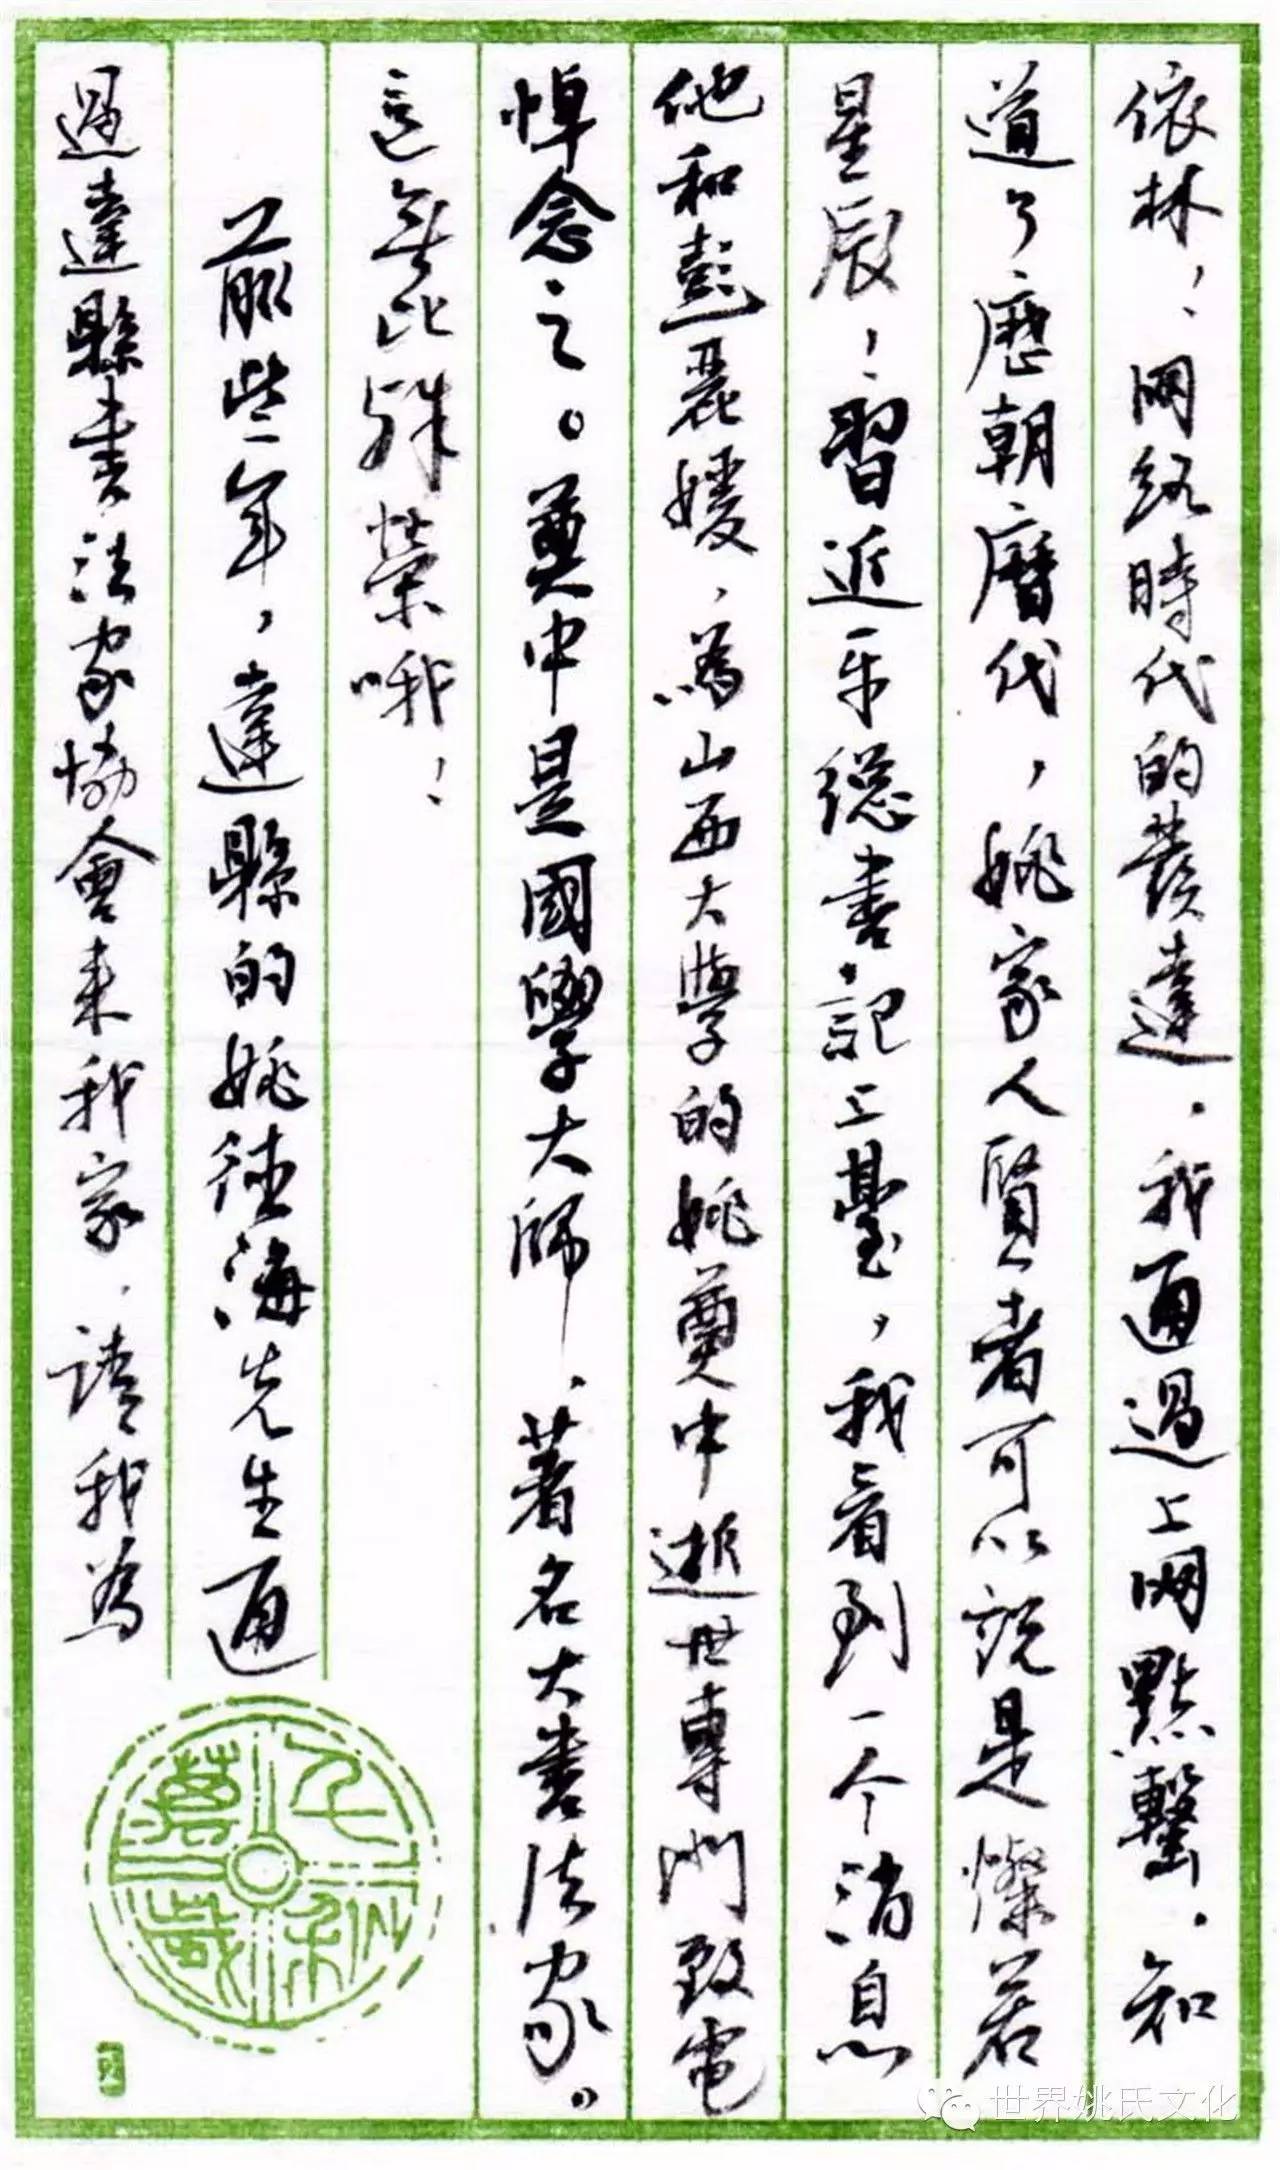 依林！網絡時代的發達，我通過上网點擊，知
道了歷朝曆代，姚家人賢者可以說是燦若
星辰！習近平總書記上臺，我看到一个消息
他和彭麗媛，為山西大學的姚奠中逝世專門致電
悼念之。奠中是國學大師，著名大書法家。
這無比殊榮哦！
前些年，達縣的姚德海先生通
過達縣書法家協會來我家，請我為
世界姚氏文化